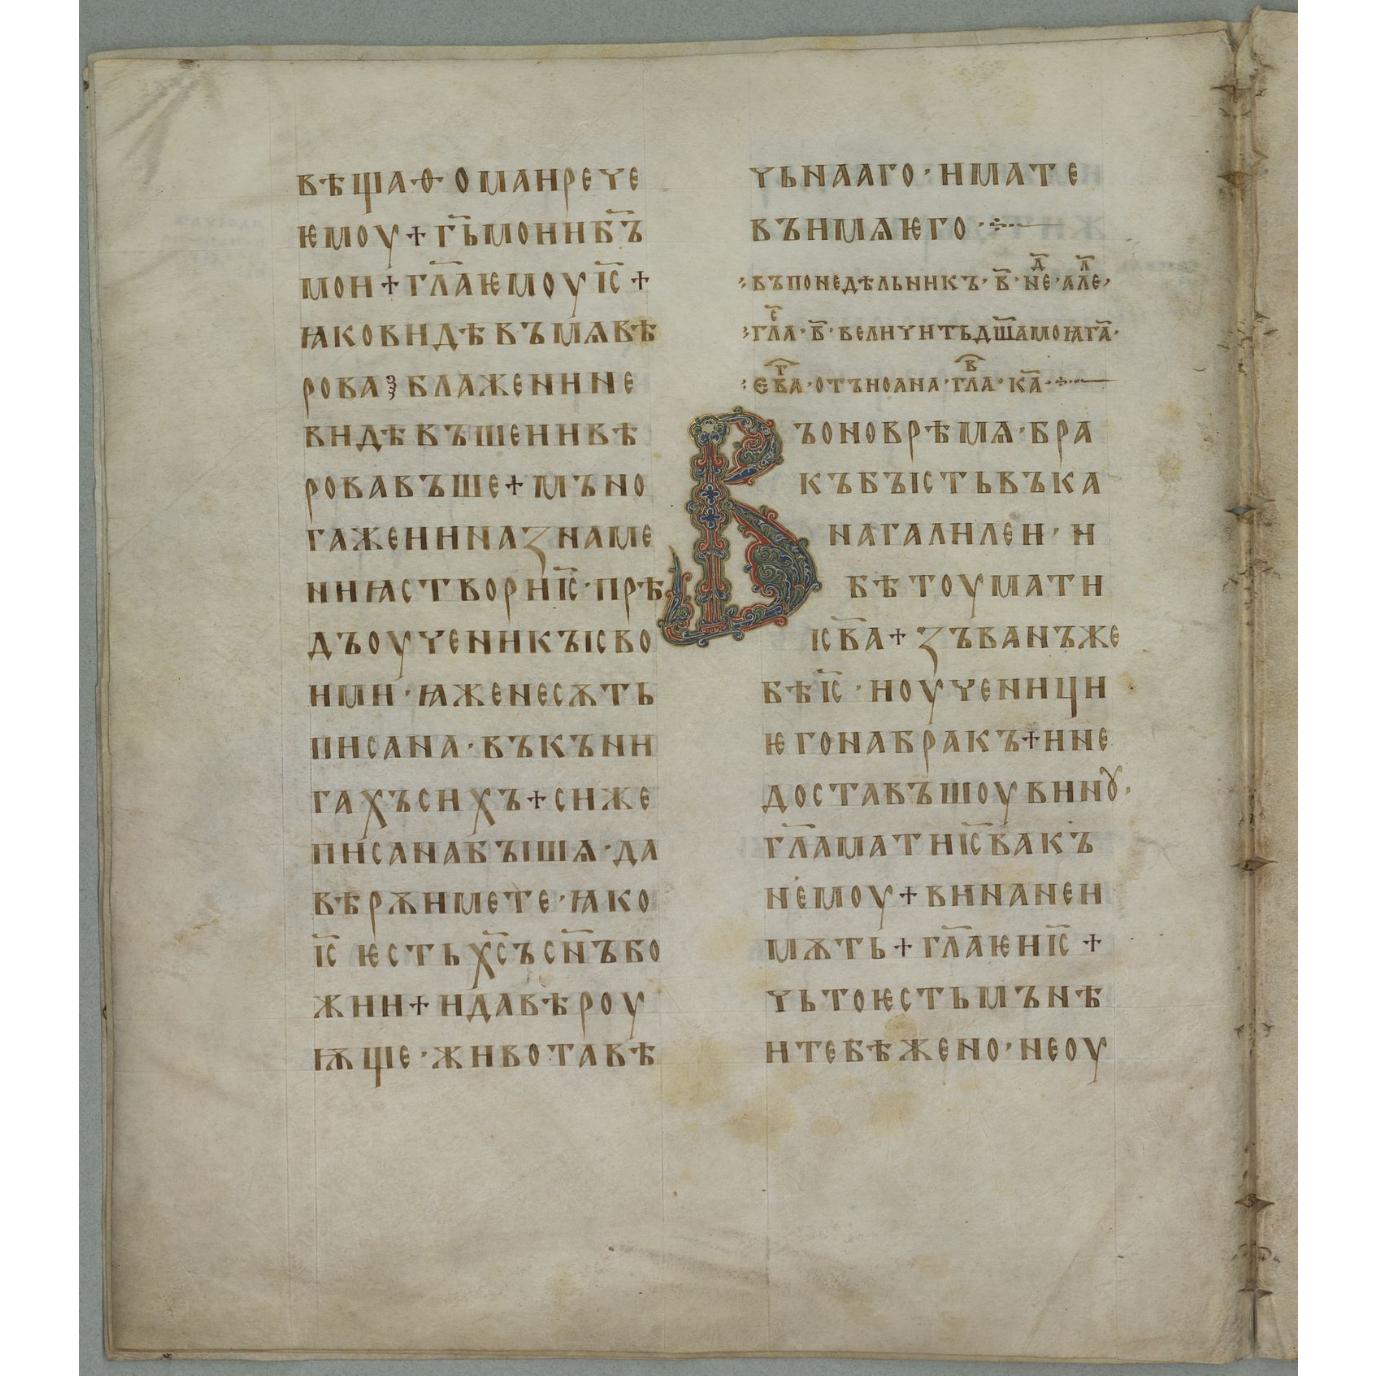 вѣщаѳомаирече
ѥмоу+г҃ьмоииб҃ъ
мои+гл҃аѥмоуіс҃+
ꙗковидѣвъмѧвѣ
рова⁏блажении не
видѣвъшеиивѣ
ровавъше+мъно
гажеиинаꙁнаме
ниꙗствориіс҃·прѣ
дъоученикꙑсво
ими·ꙗженесѫть
писана·вькъни
гахъсихъ+сиже
писанабꙑшѧ·да
вѣрѫимете·ꙗко
іс҃ ѥстьхс҃ъсн҃ъбо
жии+идавѣроу
ѭще·животавѣ
чьнааго·имате
въимѧѥго·
въпонедѣльникъ·в҃·неⷣ·алеⷧ
глаⷭ·в҃·величитьдш҃амоꙗга҃·
еваⷢ·отъиоана·глаⷡ·ка҃·
Въоноврѣмѧ·бра
къбꙑстьвъка
нагалилеи·и
бѣтоумати
ісв҃а+ꙁъванъже
бѣіс҃·иоученици
ѥгонабракъ+ине
доставъшоувинꙋ·
гл҃аматиісв҃акъ
немоу+винанеи
мѫть+гл҃аѥиіс҃+
чьтоѥстьмънѣ
итебѣжено·неоу